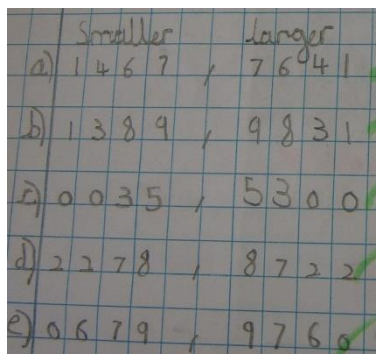 Smaller Larger
a) 1467 , 7641
b) 1389 , 9831
c) 0035 , 5300
d) 2278 , 8722
e) 0679 , 9760